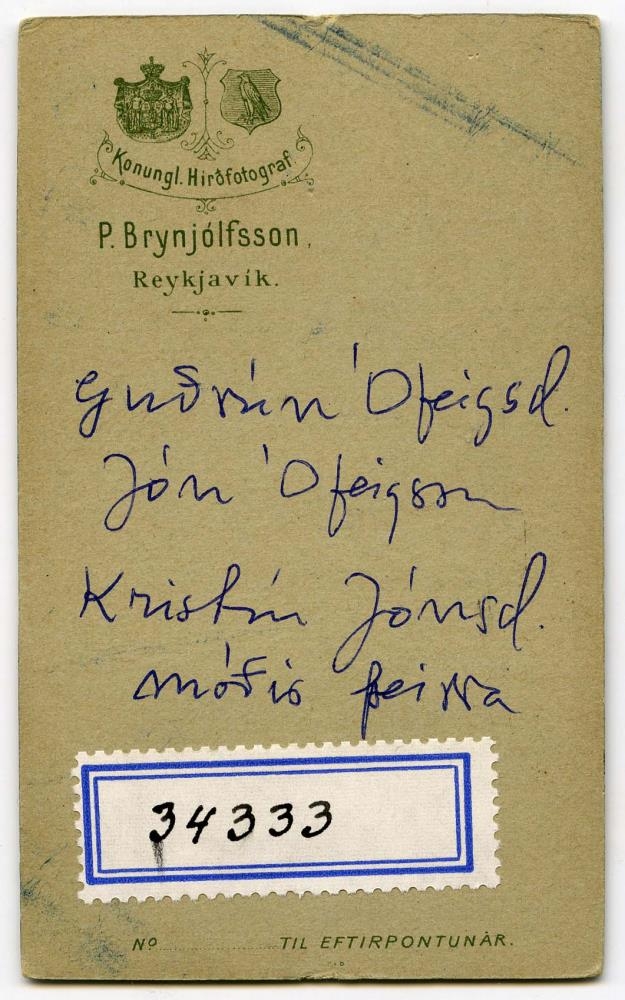 Konungl. Hirðfotograf.
P. Brynjólfsson,
Reykjavík.
Guðrún Ófeigsd.
Jón Ófeigsson
Kristín Jónsd.
móðir þeirra
34333
No ............ TIL EFTIRPONTUNAR.